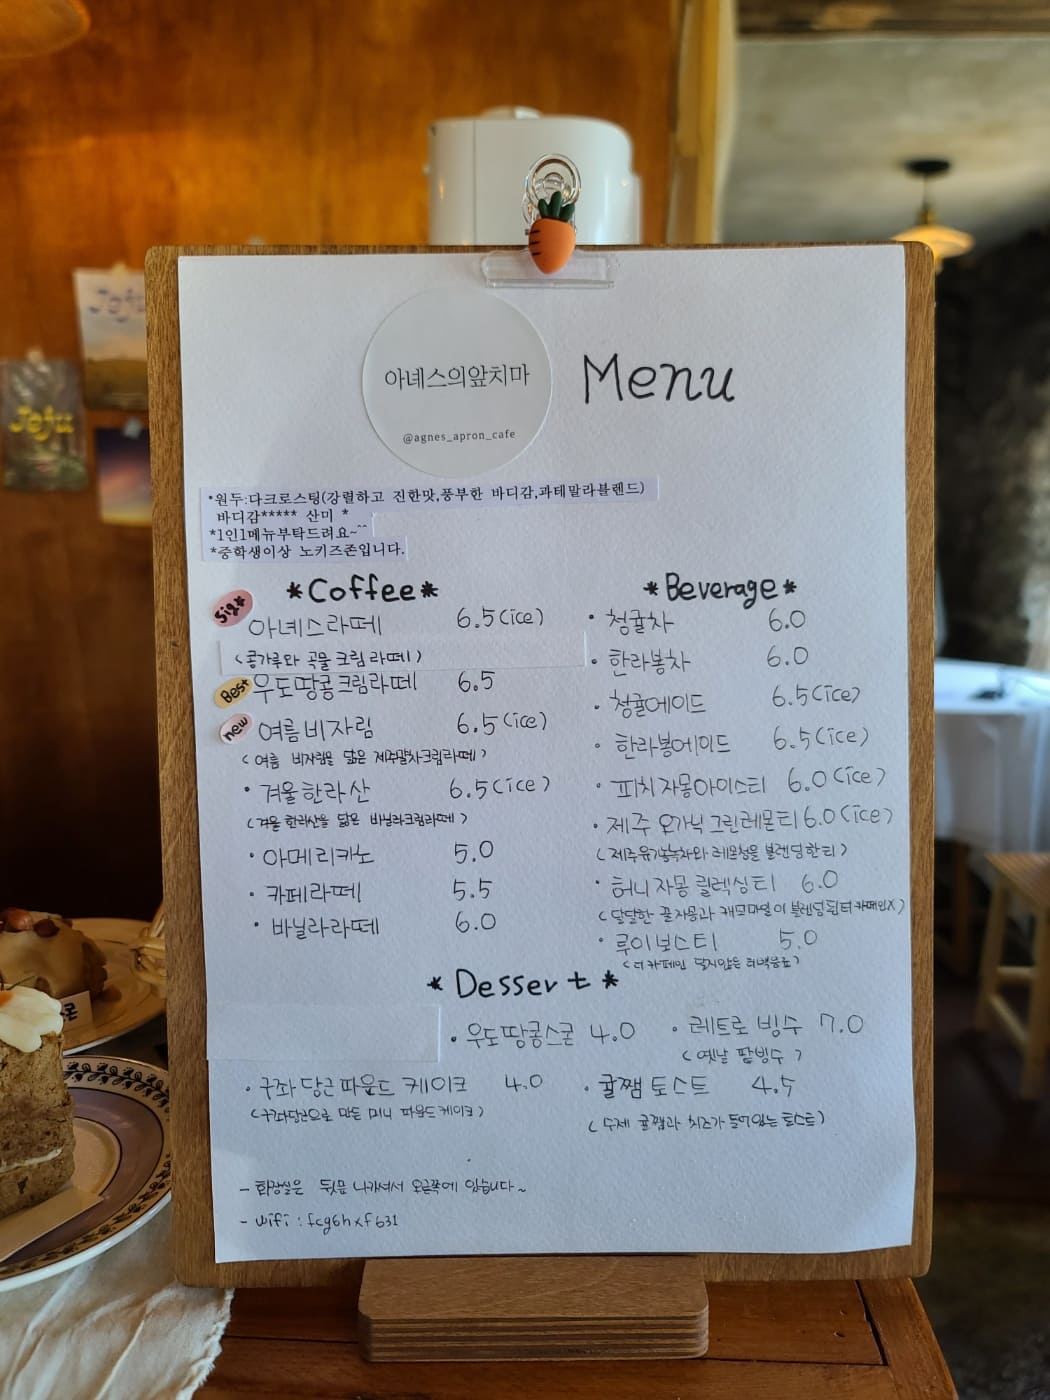 Jeju
Jeju
아녜스의앞치마
@agnes_apron_cafe
Menu
*원두:다크로스팅(강렬하고 진한맛,풍부한 바디감,과테말라블렌드)
바디감***** 산미 *
*1인1메뉴부탁드려요~^^
*중학생이상 노키즈존입니다.
*Coffee*
Sig*
아녜스라떼 6.5(ice)
(콩가루와 곡물크림라떼)
Best
우도땅콩크림라떼 6.5
new
여름비자림 6.5(ice)
(여름 비자림을 닮은 제주말차크림라떼)
· 겨울한라산 6.5(ice)
(겨울 한라산을 닮은 바닐라크림라떼)
· 아메리카노 5.0
· 카페라떼 5.5
· 바닐라라떼 6.0
*Beverage*
· 청귤차 6.0
· 한라봉차 6.0
· 청귤에이드 6.5(ice)
· 한라봉에이드 6.5(ice)
· 피치자몽아이스티 6.0(ice)
· 제주 오가닉 그린레몬티 6.0(ice)
(제주유기농녹차와 레몬청을 블렌딩한티)
· 허니자몽 릴렉싱티 6.0
(달달한 꿀자몽과 캐모마일이 블렌딩된티 카페인X)
· 루이보스티 5.0
*Dessert*
· 우도땅콩스콘 4.0
· 레트로 빙수 7.0
(옛날 팥빙수)
· 구좌당근파운드 케이크 4.0
(구좌당근으로 만든 미니 파운드케이크)
· 귤쨈토스트 4.5
(수제 귤쨈과 치즈가 들어있는 토스트)
- 화장실은 뒷문 나가셔서 오른쪽에 있습니다~
- wifi : fcg6hxf631